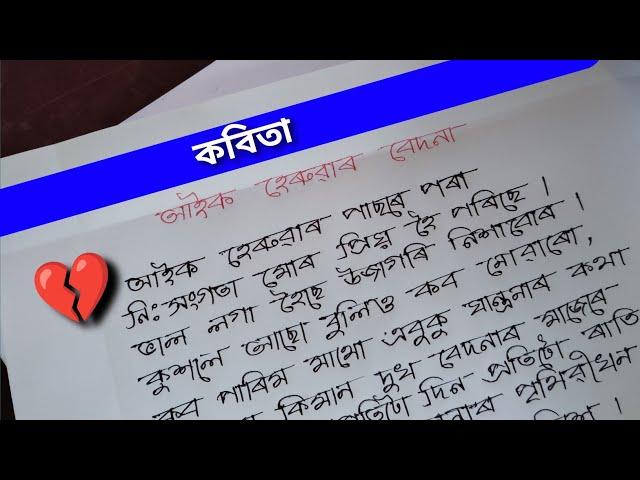 কবিতা
আইক হেৰুৱাৰ বেদনা
আইক হেৰুৱাৰ পাছৰে পৰা
নিঃসংগতা মোৰ প্ৰিয় হৈ পৰিছে ।
ভাল লগা হৈছে উজাগৰি নিশাবোৰ ।
কুশলে আছো বুলিও কব নোৱাৰো,
কব পাৰিম মাথো এবুকু যন্ত্ৰনাৰ কথা
কিমান দুখ বেদনাৰ মাজেৰে
প্ৰতিটো দিন প্ৰতিটো ৰাতি
পৃথিৱীখন